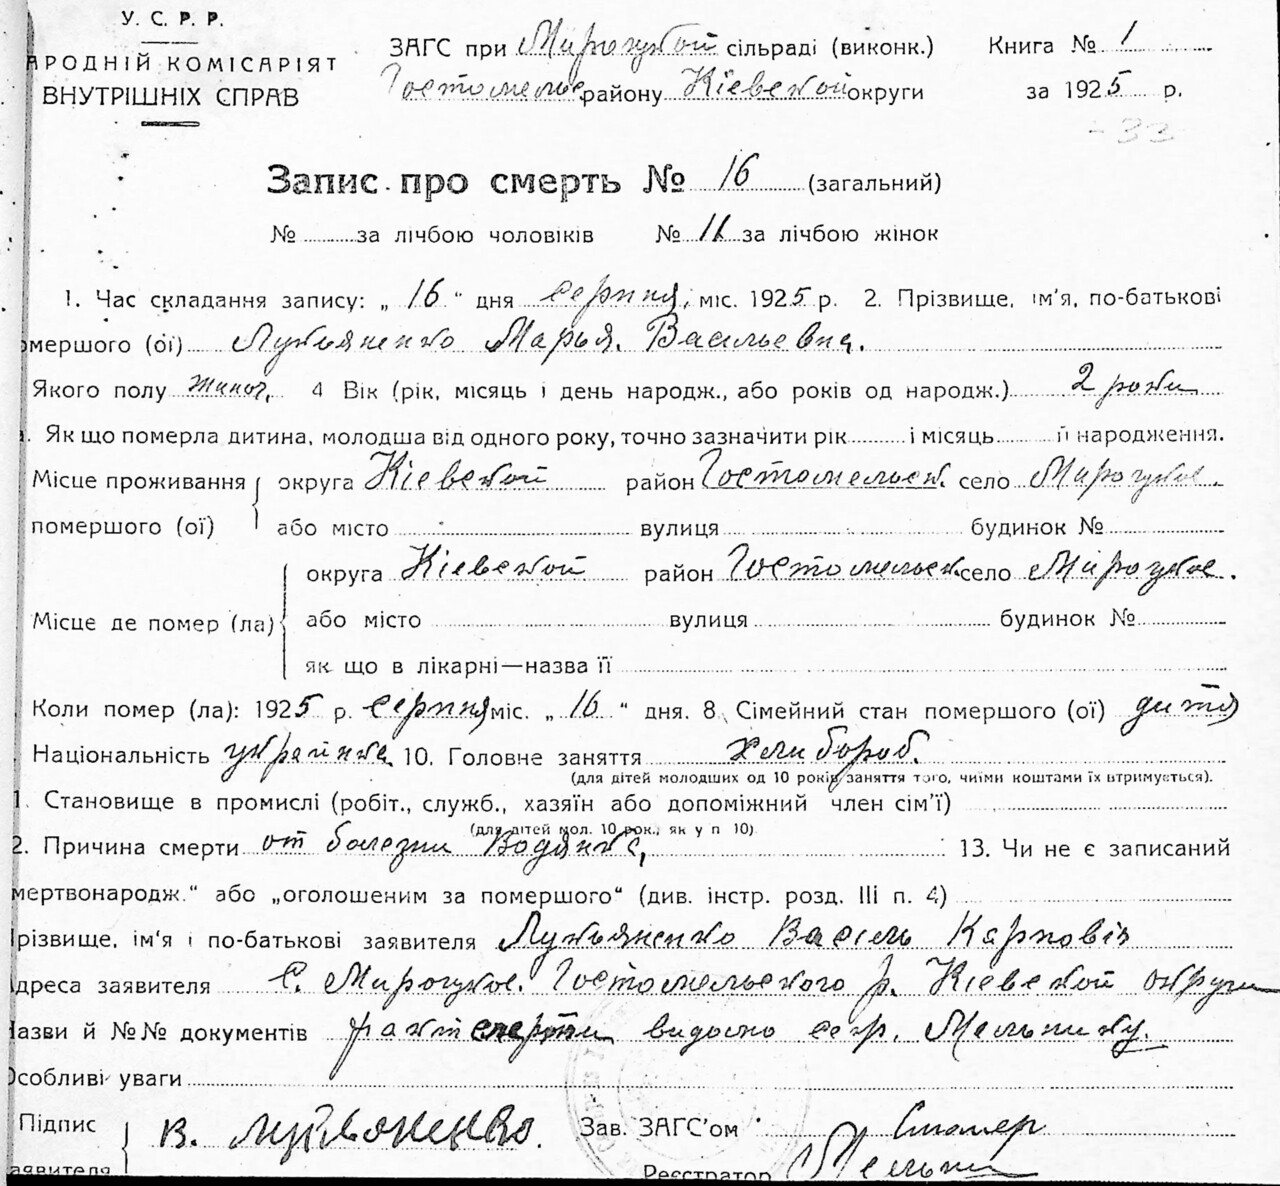 У. С. Р. Р.
АРОДНІЙ КОМІСАРІЯТ
ВНУТРІШНІХ СПРАВ
ЗАГС при Мироцкой сільраді (виконк.)
Гостомельс району Кіевской округи
Книга № 1
за 1925 р.
-33
Запис про смерть № 16 (загальний)
№ за лічбою чоловіків № 11 за лічбою жінок
1. Час складання запису: „ 16 “ дня серпня, міс. 1925 р. 2. Прізвище, ім'я, по-батькові
омершого (ої) Лукьяненко Марья Васильевна.
Якого полу жиноч, 4 Вік (рік, місяць і день народж., або років од народж.) 2 роки
. Як що померла дитина, молодша від одного року, точно зазначити рік і місяць її народження.
Місце проживання округа Кіевской район Гостомельск. село Мироцкое.
помершого (ої) або місто вулиця будинок №
округа Кіевской район Гостомельск село Мироцкое.
Місце де помер (ла) або місто вулиця будинок №
як що в лікарні—назва її
Коли помер (ла): 1925 р. серпня міс. „ 16 “ дня. 8. Сімейний стан помершого (ої) дитя
Національність украйнка 10. Головне заняття хлибороб.
(для дітей молодших од 10 років заняття того, чиїми коштами їх втримується).
1. Становище в промислі (робіт., служб., хазяїн або допоміжний член сім'ї)
(для дітей мол. 10 рок., як у п 10)
2. Причина смерти от болезни Водянка, 13. Чи не є записаний
мертвонародж.“ або „оголошеним за помершого“ (див. інстр. розд. III п. 4)
різвище, ім'я і по-батькові заявителя Лукьяненко Василь Карповіч
дреса заявителя С. Мироцкое. Гостомельского р. Кіевской округи
азви й №№ документів факт смерти видомо секр. Мельнику.
Особливі уваги
Підпис В. Лукьоненко. Зав. ЗАГС'ом
аявителя Реєстратор Мельник